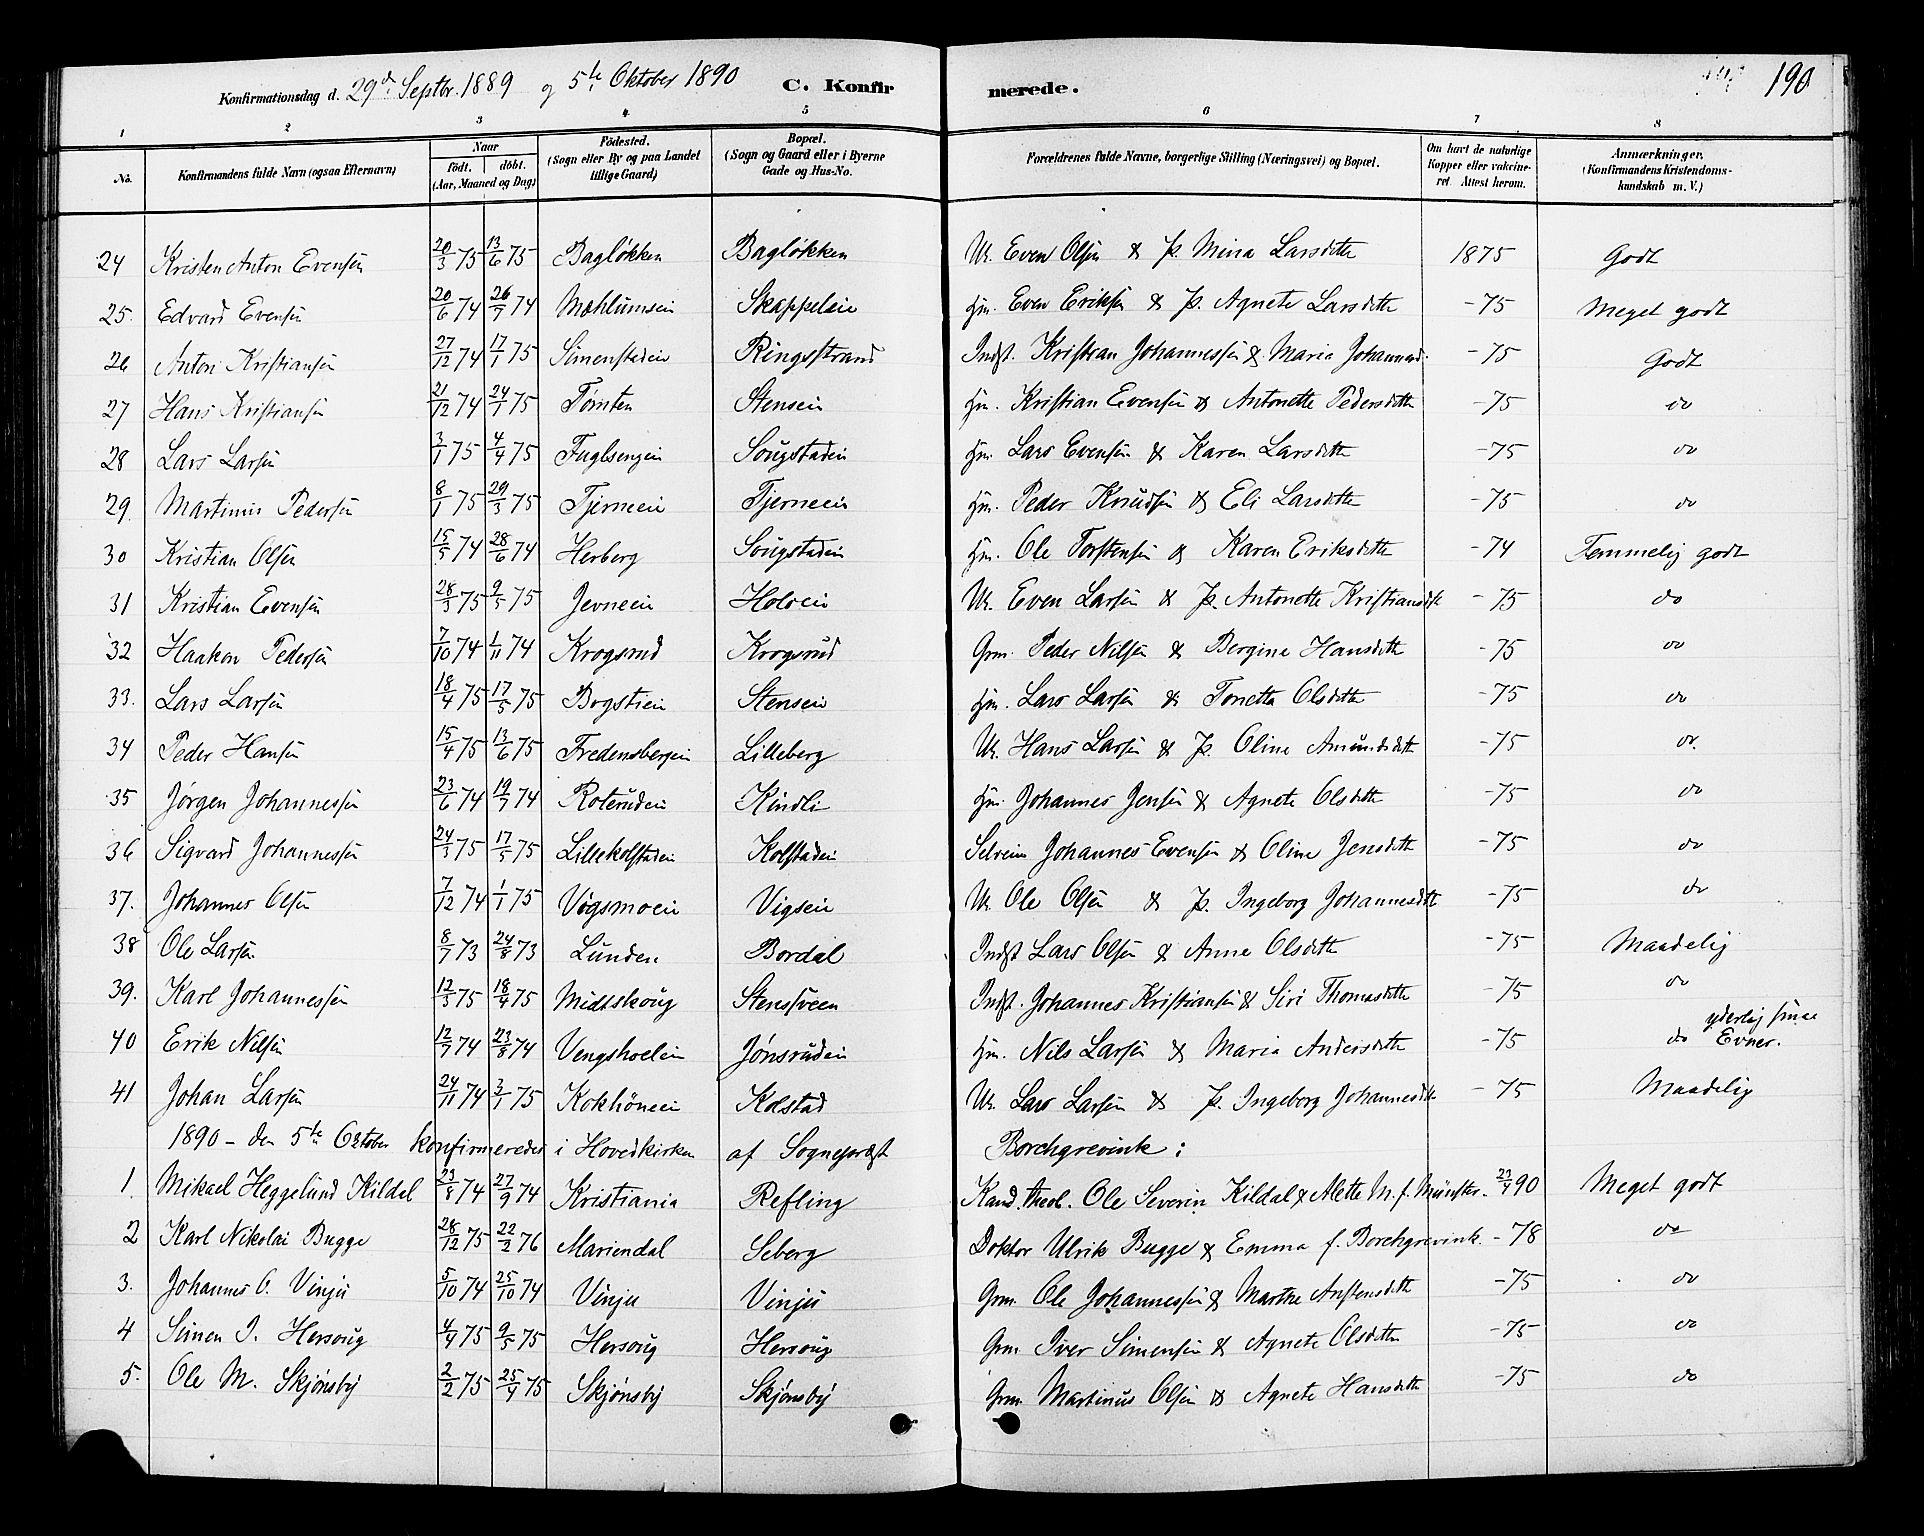 190
Konfirmationsdag d. 29de Septbr. 1889 og 5te Oktober 1890 C. Konfirmerede.
1 2 3 4 5 6 7 8
No. Konfirmandens fulde Navn (ogsaa Efternavn) Naar födt. döbt. (Aar, Maaned og Dag) Födested. (Sogn eller By og paa Landet tillige Gaard) Bopæl. (Sogn og Gaard eller i Byerne Gade og Hus-No. Forældrenes fulde Navne, borgerlige Stilling (Næringsvei) og Bopæl. Om havt de naturlige Kopper eller vakcineret. Attest herom. Anmærkninger. (Konfirmandens Kristendomskundskab m. V.)
24 Kristen Anton Evensen 20/3 75 13/6 75 Bagløkken Bagløkken U. Even Olsen & P. Mina Larsdttr 1875 Godt
25. Edvard Evensen 20/6 74 26/7 74 Mæhlumseie Skappeleie Hm. Even Eriksen & P. Agnete Larsdttr -75 Meget godt
26 Anton Kristiansen 27/12 74 17/1 75 Simenstadeie Ringsstrand Indst. Kristian Johannessen & Maria Johannesd. -75 Godt
27 Hans Kristiansen 21/12 74 24/1 75 Tømten Stenseie Hm. Kristian Evensen & Antonette Pedersdttr -75 do
28 Lars Larsen 3/1 75 4/4 75 Fuglsengen Sougstadeie Hm. Lars Evensen & Karen Larsdttr -75 do
29. Martinus Pedersen 8/1 75 29/3 75 Tjerneeie Tjerneeie Hm. Peder Knudsen & Eli Larsdttr -75 do
30 Kristian Olsen 15/5 74 28/6 74 Herberg Sougstadeie Hm. Ole Torstensen & Karen Eriksdttr -74 Temmelig godt
31 Kristian Evensen 28/3 75 9/5 75 Jevneeie Holveie U. Even Larsen & P. Antonette Kristiansdtr -75 do
32 Haakon Pedersen 7/10 74 1/11 74 Krogsrud Krogsrud Grm. Peder Nilsen & Bergine Hansdttr -75 do
33. Lars Larsen 18/4 75 17/5 75 Bogstieie Stenseie Hm. Lars Larsen & Tonetta Olsdttr -75 do
34 Peder Hansen 15/4 75 13/6 75 Fredensbergeie Lilleberg U. Hans Larsen & P. Oline Amundsdttr -75 do.
35 Jørgen Johannessen 23/6 74 19/7 74 Roterudeie Kindli Hm. Johannes Jensen & Agnete Olsdttr -75 do
36 Sigvard Johannessen 24/3 75 17/5 75 Lillekolstadeie Kolstadeie Selveier Johannes Evensen & Oline Jensdttr -75 do
37. Johannes Olsen 7/12 74 1/1 75 Vøgsmoeie Vigseie U. Ole Olsen & P. Ingeborg Johannesdttr -75 do
38 Ole Larsen 8/7 73 24/8 73 Lunden Bordal Indst Lars Olsen & Anne Olsdttr -75 Maadelig
39. Karl Johannessen 12/3 75 18/4 75 Midtskoug Stensveen Indst. Johannes Kristiansen & Siri Thomasdttr -75 do
40 Erik Nilsen 12/7 74 23/8 74 Vengshoeleie Jønsrudeie Hm. Nils Larsen & Maria Andersdttr -75 do yderlig smaa Evner.
41 Johan Larsen 24/11 74 3/1 75 Kokhöneeie Kolstad U. Lars Larsen & P. Ingeborg Johannesdtr -75 Maadelig
1890 - den 5te Oktober konfirmeredes i Hovedkirken af Sognepræst Borchgrevink:
1. Mikael Heggelund Kildal 23/8 74 27/9 74 Kristiania Refling Kand. theol. Ole Severin Kildal & Alette M. f. Münster. 90 Meget godt
2 Karl Nikolai Bugge 28/12 75 22/2 76 Mariendal Seberg Doktor Ulrik Bugge & Emma f. Borchgrevink. -78 do
3. Johannes O. Vinju 5/10 74 25/10 74 Vinju Vinju Grm. Ole Johannessen & Marthe Austensdttr -75 do
4 Simen I. Hersoug 4/4 75 9/5 75 Hersoug Hersoug Grm Iver Simensen & Agnete Olsdttr -75 do
5. Ole M. Skjønsby 2/2 75 25/4 75 Skjønsby Skjønsby Grm. Martinus Olsen & Agnete Hansdttr -75 do